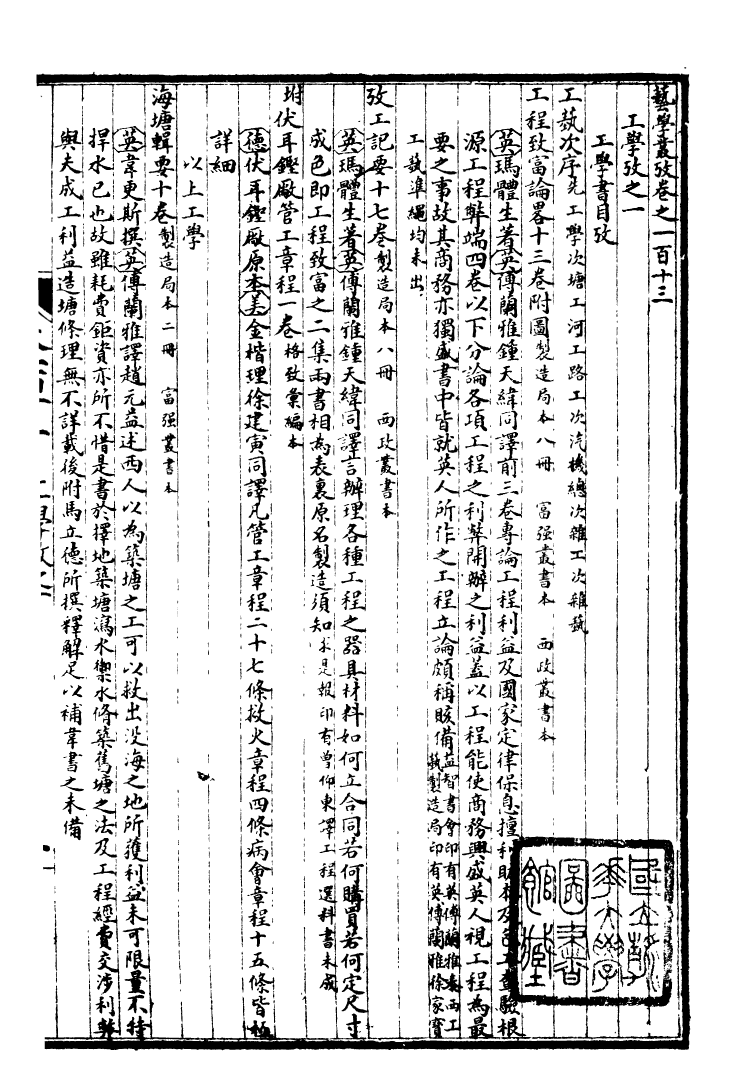 藝學叢攷卷之一百十三
工學攷之一
工學書目攷
工藝次序先工學次塘工河工路工次汽機總次雜工次雜藝
工程致富論畧十三卷附圖製造局本八冊 富强叢書本 西政叢書本
英瑪體生著英傅蘭雅鍾天緯同譯前三卷專論工程利益及國家定律保息擅利
驗根
源工程弊端四卷以下分論各項工程之利弊開辦之利益蓋以工程能使商務興盛英人視工程為最
要之事故其商務亦獨盛書中皆就英人所作之工程立論頗稱賅備益智書會印有英傅蘭雅
西工藝製造局印有英傅蘭雅徐家寶
工藝準繩均未出
攷工記要十七卷製造局本八冊 西政叢書本
英瑪體生著英傅蘭雅鍾天緯同譯言辦理各種工程之器具材料如何立合同若何購買若何定尺寸
成色即工程致富之二集兩書相為表裏原名製造須知求是報印有曾仰東譯工程選料書未成
坿伏耳鏗廠管工章程一卷格致彙編本
德伏耳鏗廠原本美金楷理徐建寅同譯凡管工章程二十七條救火章程四條病會章程十五條皆極
詳細
以上工學
海塘輯要十卷製造局本二冊 富强叢書本
英韋更斯撰英傅蘭雅譯趙元益述西人以為築塘之工可以救出没海之地所獲利益未可限量不特
捍水已也故雖耗費鉅資亦所不惜是書於擇地築塘瀉水禦水脩築舊塘之法及工程經費交涉利弊
與夫成工利益造塘修理無不詳載後附馬立德所撰釋解足以補韋書之未備
國立清華大學圖書館藏